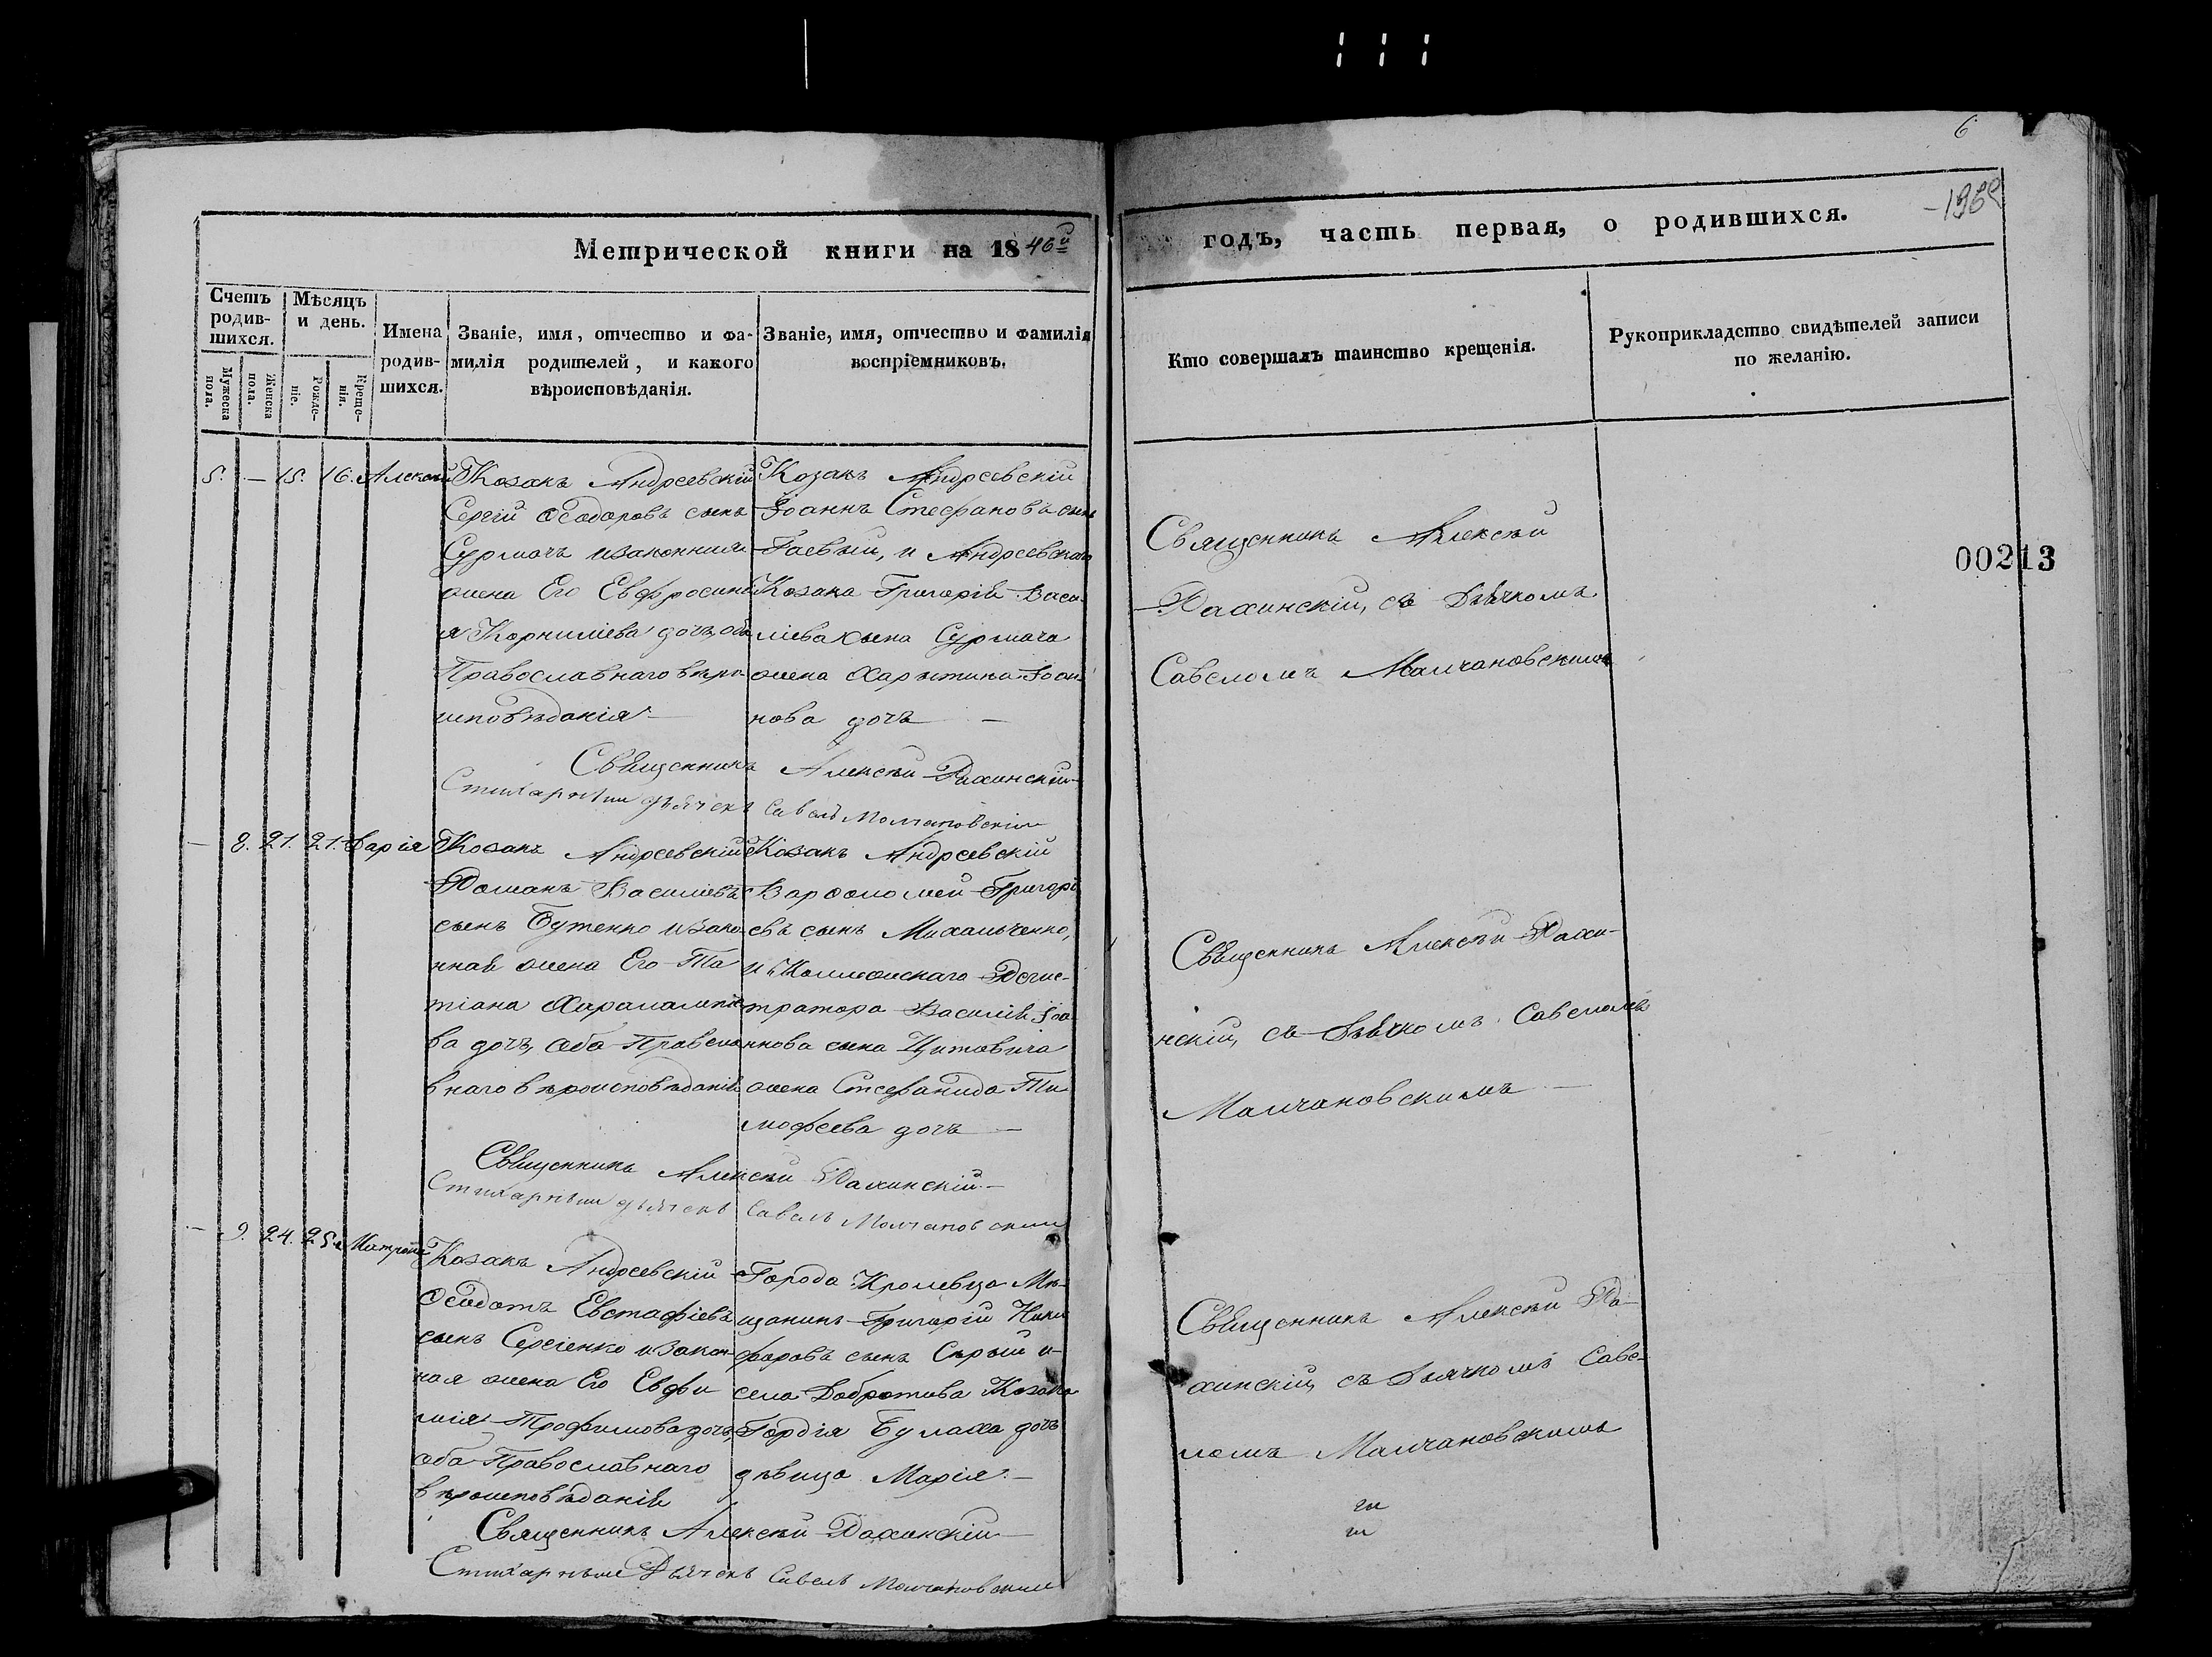 6
Метрической книги на 1846й
годъ, часть первая, о родившихся.
Счетъ родившихся.
Мужеска пола.
Женска пола.
Мѣсяцъ и день.
Рожденіе.
Крещенія.
Имена родившихся.
Званіе, имя, отчество и фамилія родителей, и какого вѣроисповѣданія.
Званіе, имя, отчество и фамилія воспріемниковъ.
Кто совершалъ таинство крещенія.
Рукоприкладство свидѣтелей записи по желанію.
00213
5. — 15. 16. Алексѣй
Козакъ Андреевскій
Сергій Ѳеодоровъ сынъ
Сурмачъ и законная
жена Его Евфросині
я Корниліева дочь, оба
Православнаго вѣро
исповѣданія —
Козакъ Андреевскій
Іоаннъ Стефановъ сынъ
Гаевый, и Андреевскаго
Козака Григорія Васи
ліева сына Сурмача
жена Харытина Іоан
нова дочь —
Священникъ Алексѣй
Рахинскій, съ Дьячкомъ
Савеломъ Малчановскимъ
Священникъ Алексѣй Рахинскій
Стихарный дьячекъ Савелъ Молчановскій
— 8. 21. 21. Дарія
Козакъ Андреевскій
Романъ Василіевъ
сынъ Бутенко и зако
нная жена Его Та
тіана Харалампіе
ва дочь, оба Правосла
внаго вѣроисповѣданія
Козакъ Андреевскій
Варѳоломей Григорі
евъ сынъ Михальченко,
и Коллежскаго Регис-
тратора Василія Іоа
ннова сына Цитовича
жена Стефанида Ти
мофеева дочь —
Священникъ Алексѣй Рахи-
нскій, съ Дьячкомъ Савеломъ
Малчановскимъ —
Священникъ Алексѣй Рахинскій —
Стихарный дьячекъ Савелъ Молчановскій
— 9. 24. 25. Матрона
Козакъ Андреевскій
Ѳеодотъ Евстафіевъ
сынъ Сергіенко и закон
ная жена Его Евфи
мія Трофимова дочь,
оба Православнаго
вѣроисповѣданія
Города Кролевца Мѣ-
щанинъ Григорій Ники
форовъ сынъ Сѣрый и
села Добротова Козака
Гордія Булаха дочь
дѣвица Марія —
Священникъ Алексѣй Ра-
хинскій, съ Дьячкомъ Саве-
ломъ Малчановскимъ
Священникъ Алексѣй Рахинскій —
Стихарный Дьячекъ Савелъ Молчановскій